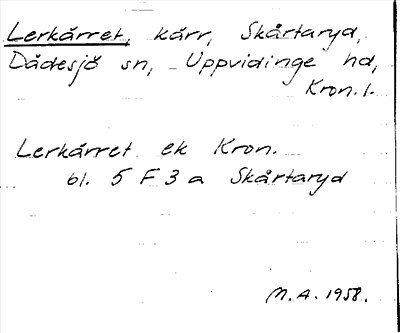 Lerkärret, kärr, Skårtaryd,
Dädesjö sn, Uppvidinge hd,
Kron. l.
Lerkärret ek Kron.
bl. 5 F 3 a Skårtaryd
M.A. 1958.